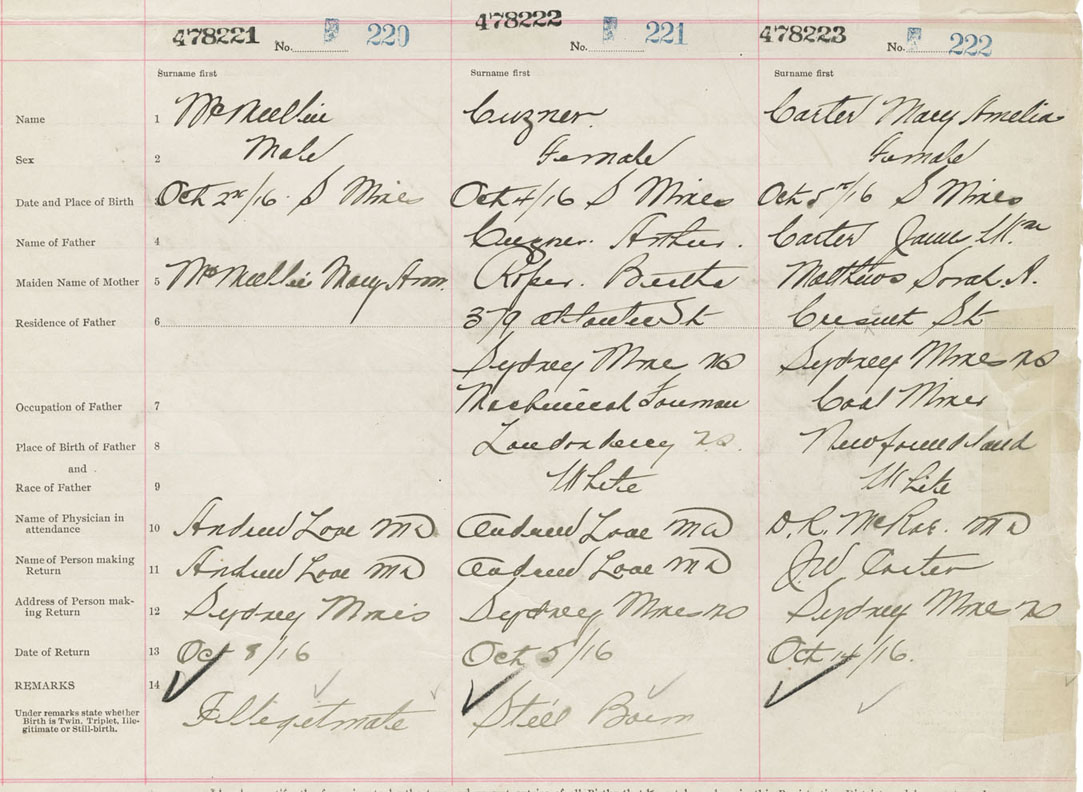 478221 No. 220
478222 No. 221
478223 No. 222
Surname first Surname first Surname first
Name 1 Cuzner. Carter Mary Amelia
Sex 2 Male Female Female
Date and Place of Birth 3 Oct 2nd/16 S Mines Oct 4/16 S Mines Oct 5th/16 S Mines
Name of Father 4 Cuzner. Arthur. Carter James Wm
Maiden Name of Mother 5 Mary Ann. Roper. Bertha Matthews Sarah A.
Residence of Father 6 St Cresent St
Sydney Mine NS Sydney Mines NS
Occupation of Father 7 Mechanical Forman Coal Miner
Place of Birth of Father 8 Londonderry NS. Newfoundland
and
Race of Father 9 White White
Name of Physician in
attendance 10 Andrew Love MD Andrew Love MD D.R. McRae. MD
Name of Person making
Return 11 Andrew Love MD Andrew Love MD JW Carter
Address of Person mak-
ing Return 12 Sydney Mines Sydney Mines NS Sydney Mines NS
Date of Return 13 Oct 8/16 Oct 5/16 Oct 14/16.
REMARKS 14
Under remarks state whether
Birth is Twin, Triplet, Ille-
gitimate or Still-birth.
Illegitmate Still Born